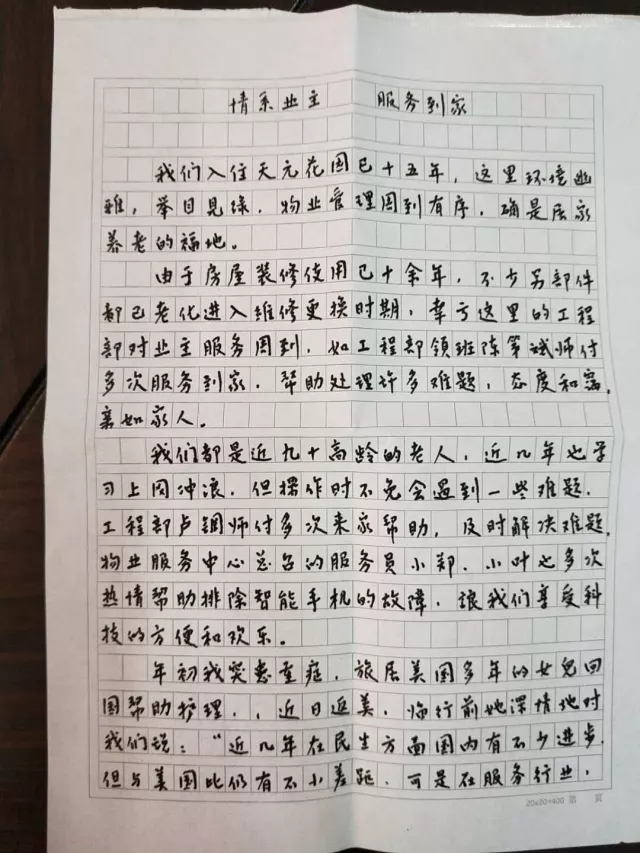 情系业主 服务到家
我们入住天元花园已十五年，这里环境幽
雅，举目见绿，物业管理周到有序，确是居家
养老的福地。
由于房屋装修使用已十余年，不少另部件
都已老化进入维修更换时期，幸亏这里的工程
部对业主服务周到，如工程部领班陈第斌师付
多次服务到家，帮助处理许多难题，态度和蔼，
亲如家人。
我们都是近九十高龄的老人，近几年也学
习上网冲浪，但操作时不免会遇到一些难题，
工程部卢钢师付多次来家帮助，及时解决难题，
物业服务中心总台的服务员小郑、小叶也多次
热情帮助排除智能手机的故障，让我们享受科
技的方便和欢乐。
年初我突患重症，旅居美国多年的女儿回
国帮助护理，，近日返美，临行前她深情地对
我们说：“近几年在民生方面国内有不少进步，
但与美国比仍有不小差距，可是在服务行业，
20x20=400 第 页